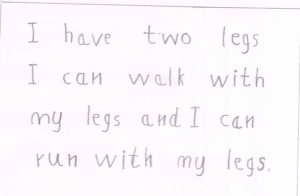 I have two legs
I can walk with
my legs and I can
run with my legs.